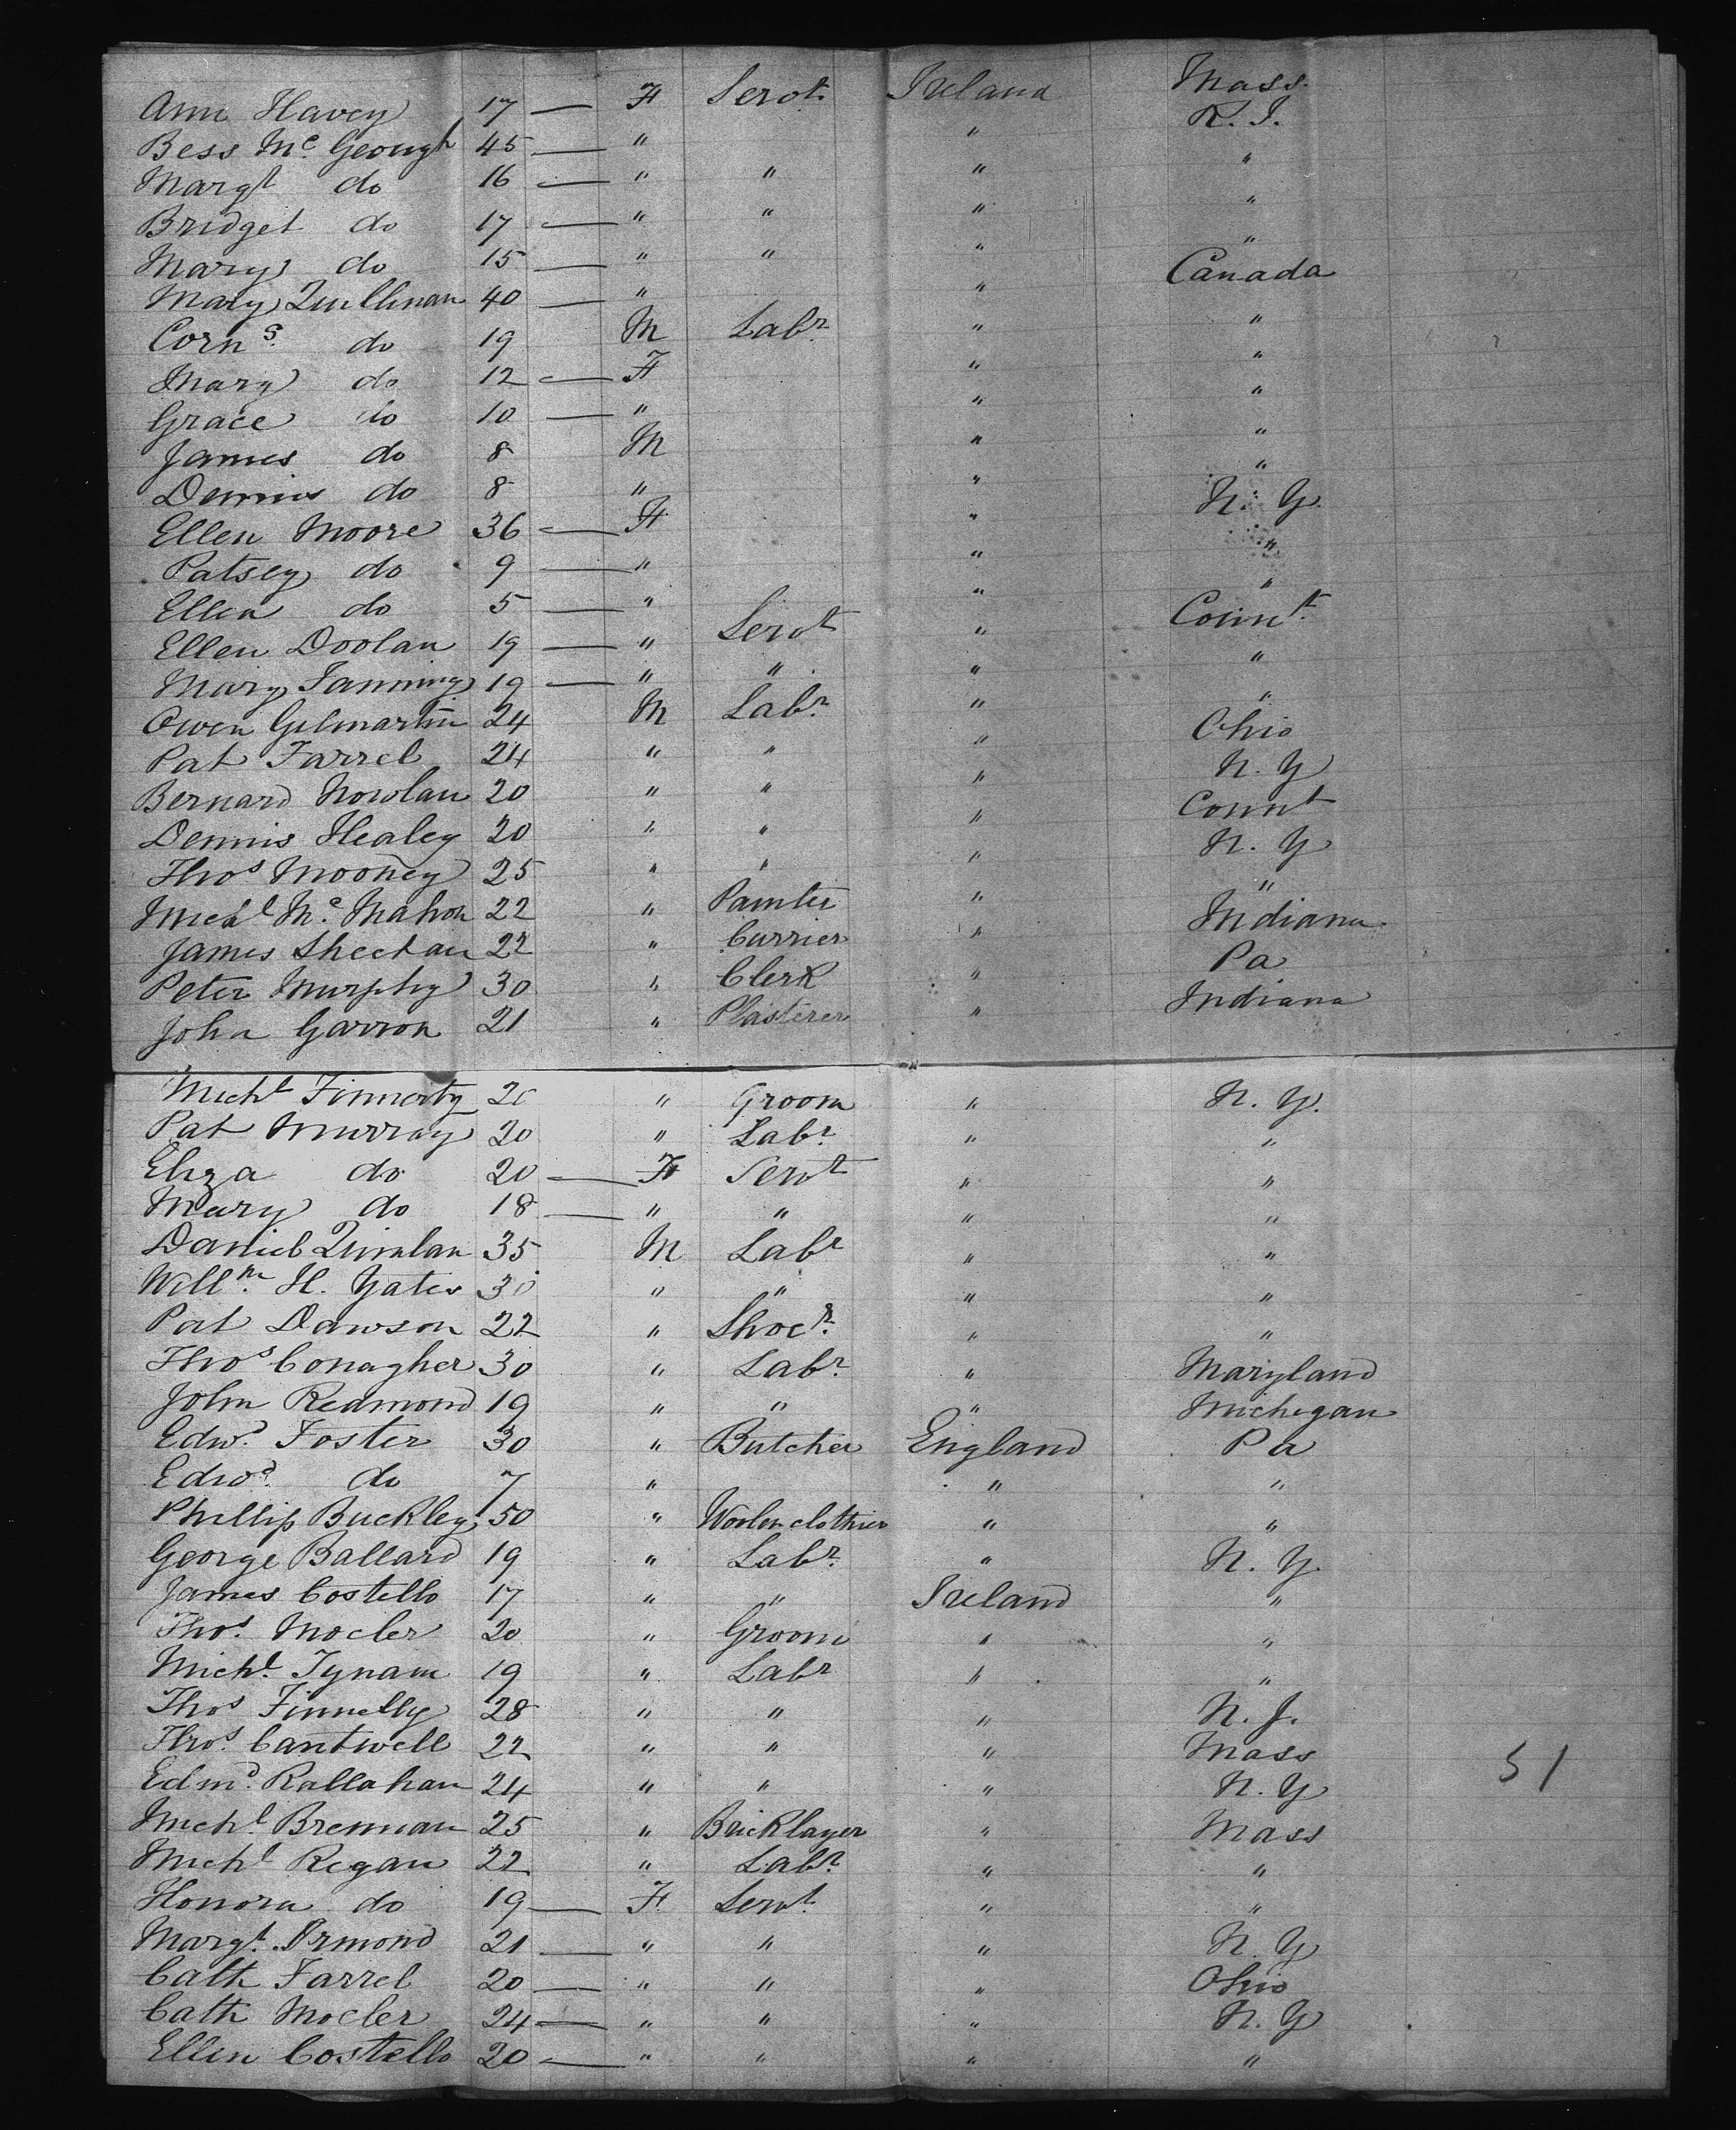 Ann Havey 17 — F Servt Ireland Mass.
Bess Mc. Geough 45 — " " R. I.
Margt do 16 — " " " "
Bridget do 17 — " " " "
Mary do 15 — " " " "
Mary Quillinan 40 — " " Canada
Corns. do 19 M Labr. " "
Mary do 12 — F " "
Grace do 10 — " " "
James do 8 M " "
Dennis do 8 " " "
Ellen Moore 36 — F " N. Y.
Patsey do 9 — " " "
Ellen do 5 — " " "
Ellen Doolan 19 — " Servt " Connt.
Mary Fanning 19 — " " " "
Owen Gilmartin 24 M Labr. " "
Pat Farrel 24 " " " Ohio
Bernard Nowlan 20 " " " N. Y
Dennis Healey 20 " " " Connt
Thos Mooney 25 " " " N. Y
Michl Mc. Mahon 22 " Painter " "
James Sheehan 22 " Currier " Indiana
Peter Murphy 30 " Clerk " Pa
John Garron 21 " Plasterer " Indiana
Michl Finnerty 20 " Groom " N. Y.
Pat Murray 20 " Labr. " "
Eliza do 20 — F Servt " "
Mary do 18 — " " " "
Daniel Quinlan 35 M Labr " "
Willm. H. Yates 30 " " " "
Pat Dawson 22 " Shoer. " "
Thos Conagher 30 " Labr. " Maryland
John Redmond 19 " " " Michegan
Edwd. Foster 30 " Butcher England Pa
Edwd. do 7 " " "
Phillip Buckley 50 " Woolen clothier " "
George Ballard 19 " Labr. " N. Y.
James Costello 17 " " Ireland "
Thos. Mocler 20 " Groom " "
Michl. Tynam 19 " Labr " "
Thos Finnelly 28 " " " N. J.
Thos. Cantwell 22 " " " Mass
Edmd. Kallahan 24 " " " N. Y 51
Michl. Brennan 25 " Bricklayer " Mass
Michl Regan 22 " Labr. " "
Honora do 19 — F Servt. " "
Margt. Ormond 21 — " " " N. Y
Cath Farrel 20 — " " " Ohio
Cath Mocler 24 — " " " N. Y
Ellen Costello 20 — " " " "